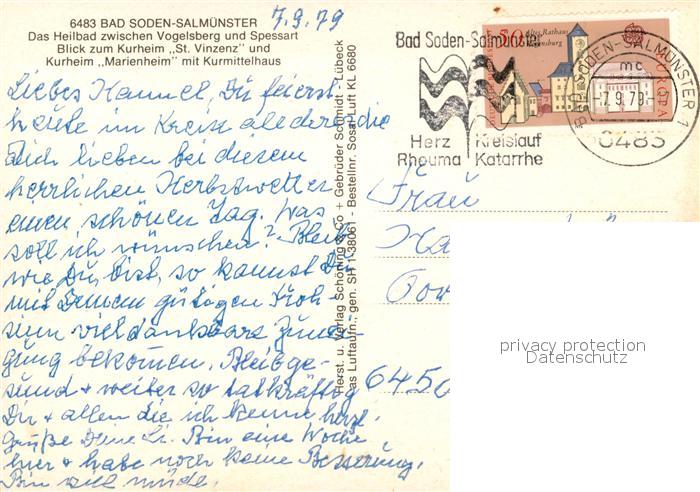 7.9.79
6483 BAD SODEN-SALMÜNSTER
Das Heilbad zwischen Vogelsberg und Spessart
Blick zum Kurheim „St. Vinzenz" und
Kurheim „Marienheim" mit Kurmittelhaus
Liebes Hannel, Du feierst
heute im Kreise all derer die
Dich lieben bei diesem
herrlichen Herbstwetter
einen schönen Tag. Was
soll ich wünschen? Bleib
wie Du bist, so kannst Du
mit Deinem gütigen Froh-
sinn viel dankbare Zunei-
gung bekommen. Bleib ge-
sund + weiter so tatkräftig
Dir + allen die ich kenne herzl.
Grüße Deine Li. Bin eine Woche
hier + habe noch keine Besserung.
Bin viel müde.
Herst. u. Verlag Schöning & Co + Gebrüder Schmidt - Lübeck
Das Luftaufn.: gen. SH 1-38061 - Bestellnr. Sosal Luft KL 6680
Bad Soden-Salmünster
Herz Kreislauf
Rheuma Katarrhe
50
Altes Rathaus
Regensburg
EUROPA
BAD SODEN-SALMÜNSTER 1
mc
-7.9.79
6483
Frau
Ha
6450
privacy protection
Datenschutz